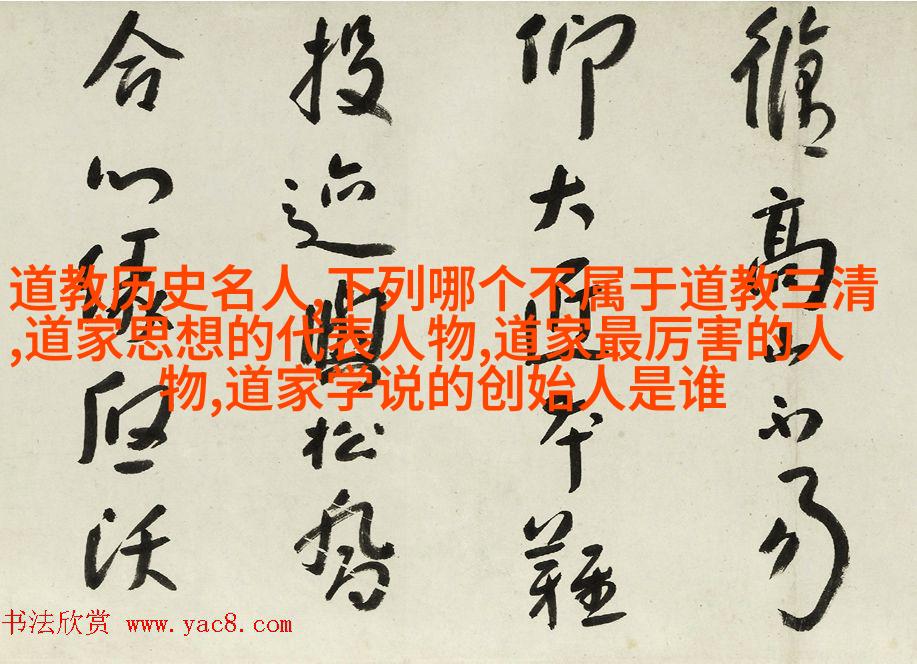 高不易
仰大本難
投迹松喬
合心沃
道教历史名人,下列哪个不属于道教三清
,道家思想的代表人物,道家最厉害的人
物,道家学说的创始人是谁
书法欣赏 www.yac8.com